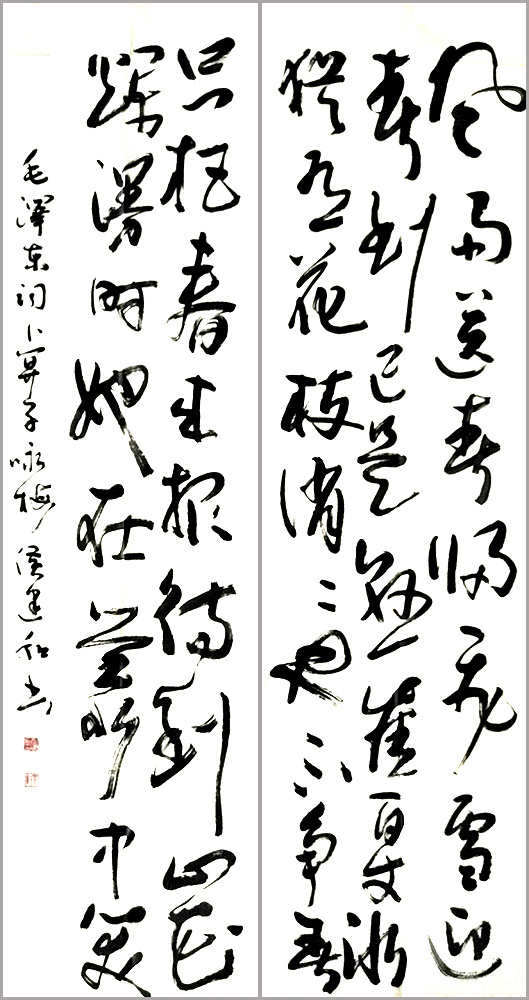 风雨送春归飞雪迎
春到已是悬崖百丈冰
猶有花枝俏〻也不争春
只把春来报待到山花
爛漫时她在叢中笑
毛澤东词卜算子咏梅 侯建和书